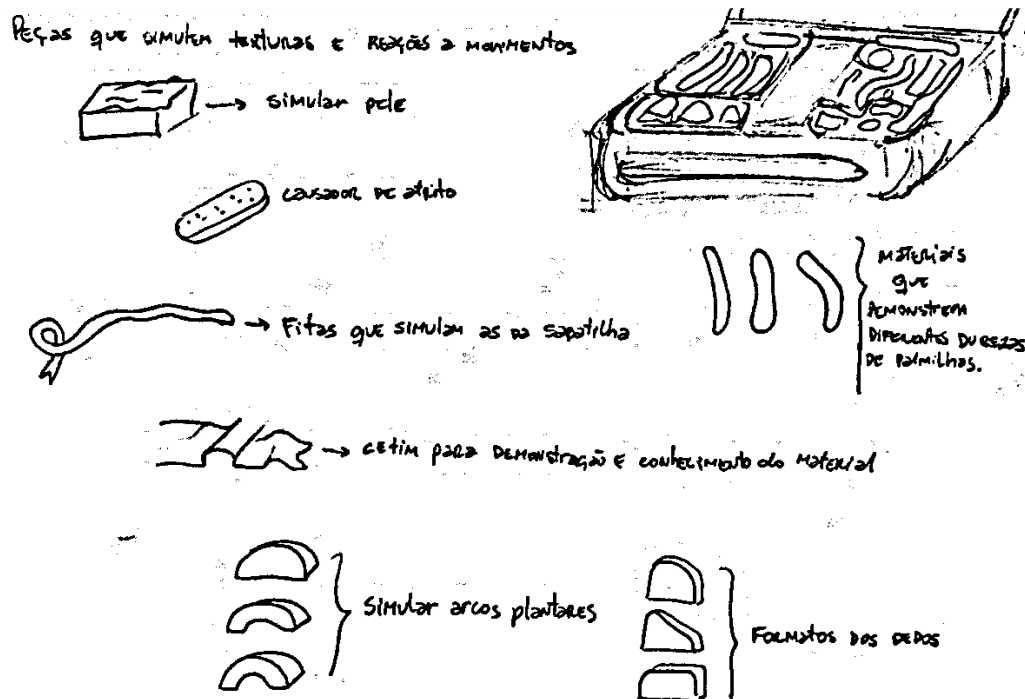 PEÇAS QUE SIMULEM TEXTURAS E REAÇÕES A MOVIMENTOS
SIMULAR PELE
CAUSADOR DE ATRITO
FITAS QUE SIMULAM AS DA SAPATILHA
MATERIAIS
QUE
DEMONSTREM
DIFERENTES DUREZAS
DE PALMILHAS.
CETIM PARA DEMONSTRAÇÃO E CONHECIMENTO do MATERIAL
SIMULAR ARCOS PLANTARES
FORMATOS DOS DEDOS